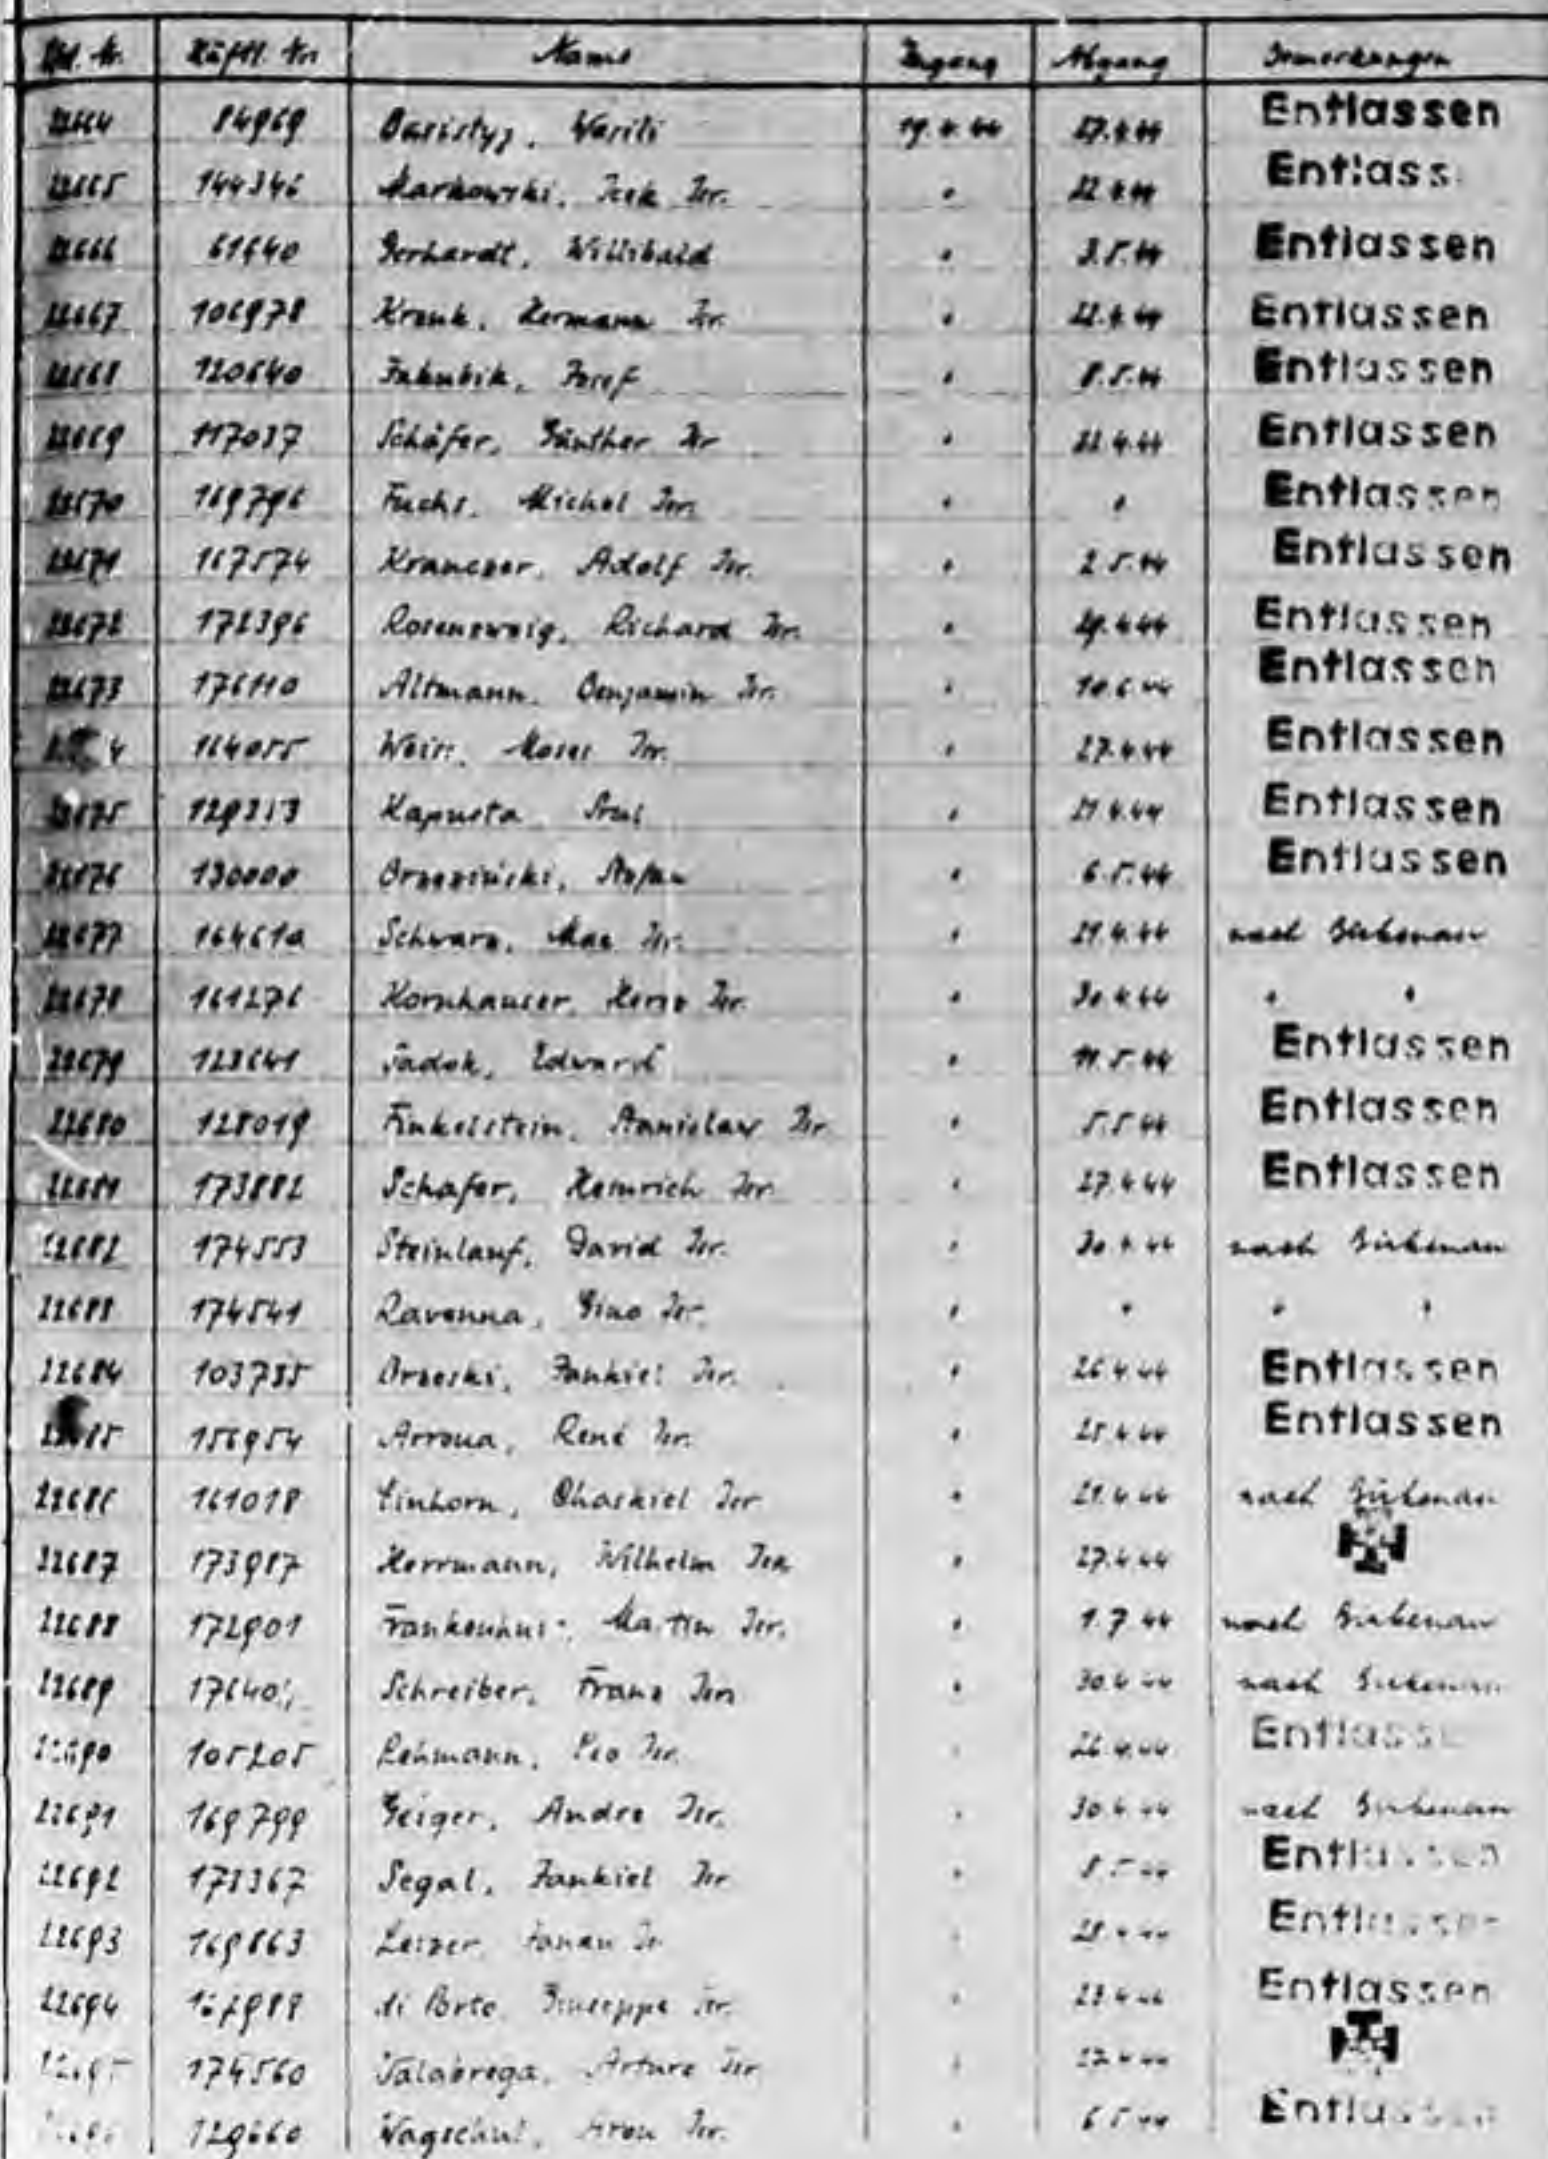 Lfd. Nr. Häftl. Nr. Name Zugang Abgang Bemerkungen
22664 84969 Basistyj, Wasili 19.4.44 27.4.44 Entlassen
22665 144346 Markowski, Icek Isr. " 22.4.44 Entlass
22666 61640 Gerhardt, Willibald " 3.5.44 Entlassen
22667 106978 Kronk, Hermann Isr. " 22.4.44 Entlassen
22668 120640 Jakubik, Josef " 8.5.44 Entlassen
22669 117037 Schäfer, Günther Isr " 22.4.44 Entlassen
22670 169796 Fuchs, Michel Isr. " " Entlassen
22671 167574 Kranczer, Adolf Isr. " 2.5.44 Entlassen
22672 172396 Rosenzweig, Richard Isr. " 29.4.44 Entlassen
22673 176110 Altmann, Benjamin Isr. " 10.6.44 Entlassen
4 164055 Moses Isr. " 27.4.44 Entlassen
22675 129313 Kapusta " 21.4.44 Entlassen
22676 130000 Brzeziński, Stefan " 6.5.44 Entlassen
22677 164610 Schwarz, Max Isr. " 21.4.44 nach Birkenau
22678 161276 Kornhauser, Hersz Isr. " 30.4.44 " "
22679 123641 Sadok, Edward " 11.5.44 Entlassen
22680 128019 Finkelstein, Stanislaw Isr. " 5.5.44 Entlassen
22681 173882 Schafer, Heinrich Isr. " 27.4.44 Entlassen
22682 174553 Steinlauf, David Isr. " 30.4.44 nach Birkenau
22683 174541 Ravenna, Gino Isr. " " " "
22684 103735 Brzeski, Jankiel Isr. " 26.4.44 Entlassen
22685 156954 Arroua, René Isr. " 25.4.44 Entlassen
22686 161018 Einhorn, Chaskiel Isr " 21.4.44 nach Birkenau
22687 173987 Herrmann, Wilhelm Isr. " 27.4.44
22688 172901 Martin Isr. " 1.7.44 nach Birkenau
22689 Schreiber, Franz Isr. " 30.4.44 nach Birkenau
22690 105205 Lehmann, Leo Isr. " 26.4.44 Entlasse
22691 169799 Geiger, Andre Isr. " 30.4.44 nach Birkenau
22692 173367 Segal, Jankiel Isr " 8.5.44 Entlassen
22693 169863 Leizer Isr " Entlassen
22694 di Porto, Giuseppe Isr. " 23.4.44 Entlassen
22695 174560 Valabrega, Arturo Isr " 22.4.44
129660 Wagschal, Aron Isr. " 6.5.44 Entlassen